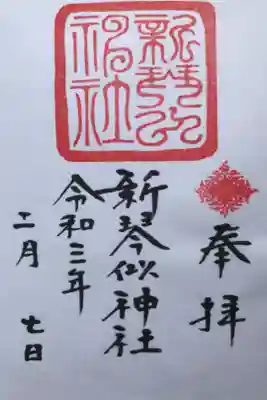 奉拝
新琴似神社
令和三年
二月 七日
新琴似
神社